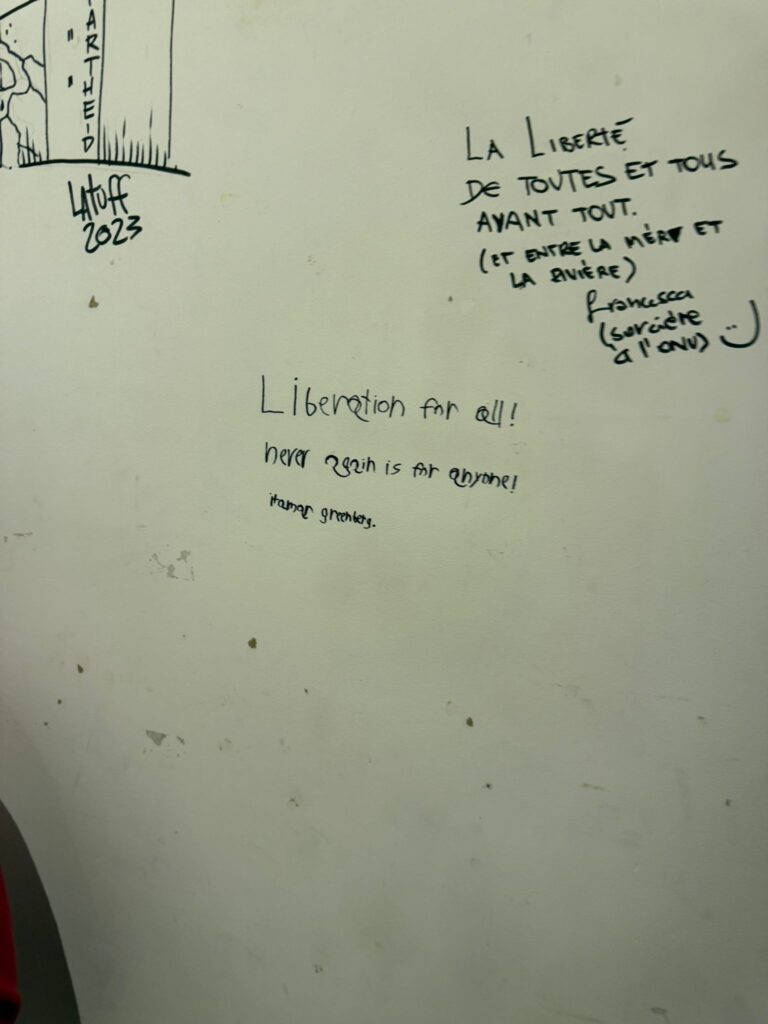 "
"
APARTHEID
LATUFF
2023
LA LIBERTÉ
DE TOUTES ET TOUS
AVANT TOUT.
(ET ENTRE LA MÉR ET
LA RIVIÈRE)
francesca
(sorcière
à l'ONU) :)
Liberation for all!
never again is for anyone!
itamar greenberg.